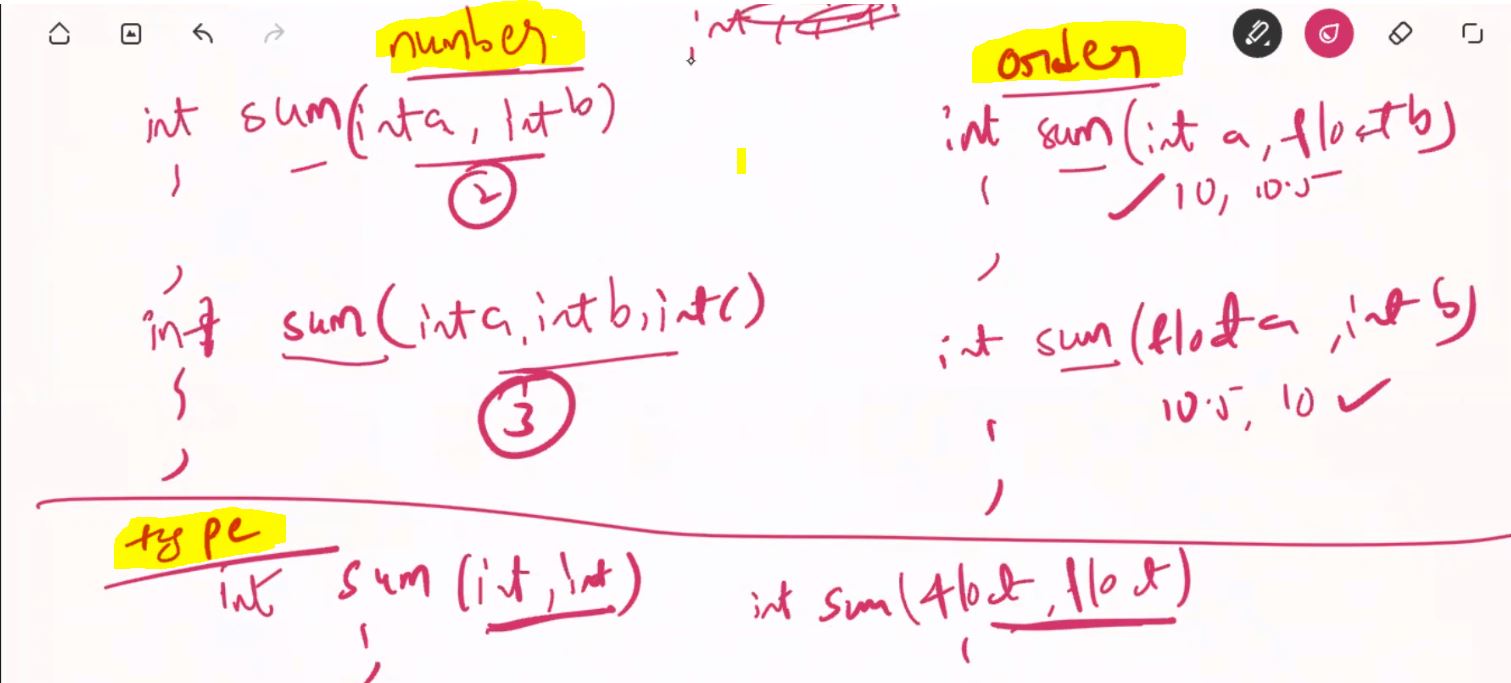 number
int sum(int a, int b)
2
int sum(int a, int b, int c)
3
order
int sum(int a, float b)
10, 10.5
int sum(float a, int b)
10.5, 10
type
int sum(int, int)
int sum(float, float)